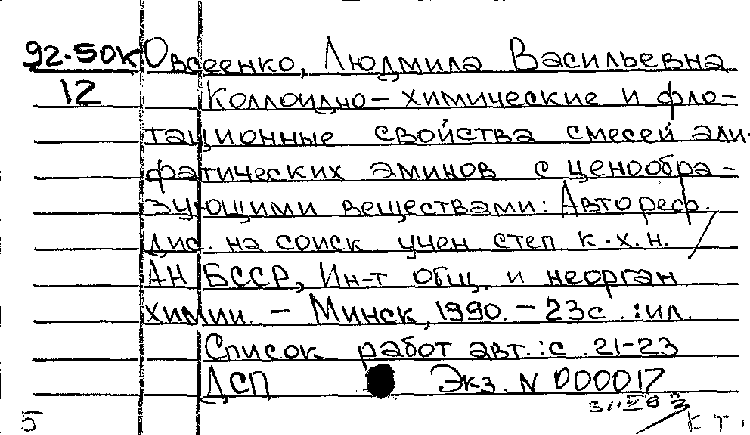 92-50к Овсеенко, Людмила Васильевна
12 Коллоидно-химические и фло-
тационные свойства смесей али-
фатических аминов с ценообра-
зующими веществами: Автореф.
дис. на соиск учен степ к.х.н. /
АН БССР, Ин-т общ. и неорган
химии. - Минск, 1990. - 23с. :ил.
Список работ авт.: с. 21-23
ДСП Экз. N 000017
5 К Т.